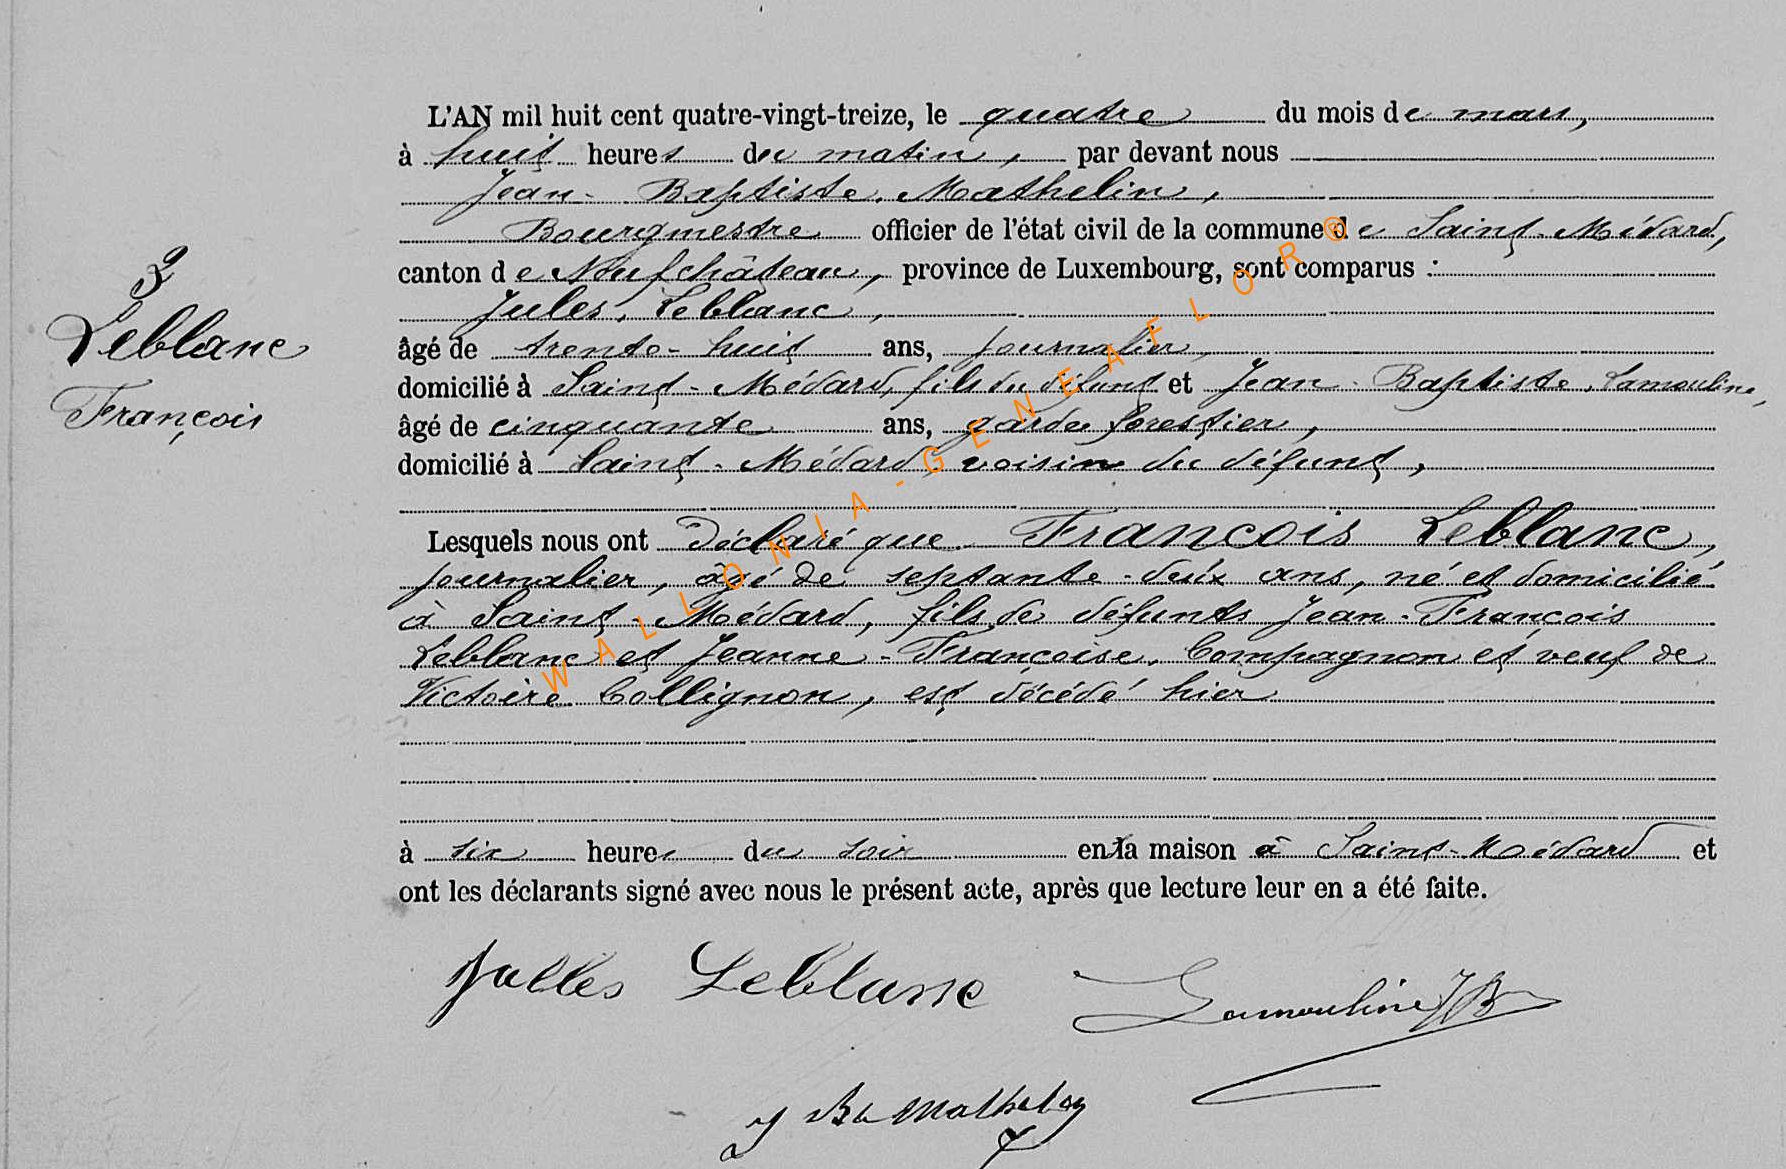 L'AN mil huit cent quatre-vingt-treize, le quatre du mois de mars,
à huit heures du matin, par devant nous
Jean-Baptiste Mathelin,
Bourgmestre officier de l'état civil de la commune de Saint-Médard,
canton de Neufchâteau, province de Luxembourg, sont comparus :
Jules Leblanc,
âgé de trente-huit ans, journalier,
domicilié à Saint-Médard, fils du défunt et Jean-Baptiste Lamouline,
âgé de cinquante ans, garde forestier,
domicilié à Saint-Médard, voisin du défunt,
3
Leblanc
François
Lesquels nous ont déclaré que François Leblanc,
journalier, âgé de septante-deux ans, né et domicilié
à Saint-Médard, fils de défunts Jean-François
Leblanc et Jeanne-Françoise Compagnon et veuf de
Victoire Collignon, est décédé hier
à six heures du soir en la maison à Saint-Médard et
ont les déclarants signé avec nous le présent acte, après que lecture leur en a été faite.
Julles Leblanc Lamouline JB
J Bte Mathelin
WALLONIA-GENEAFLOR®